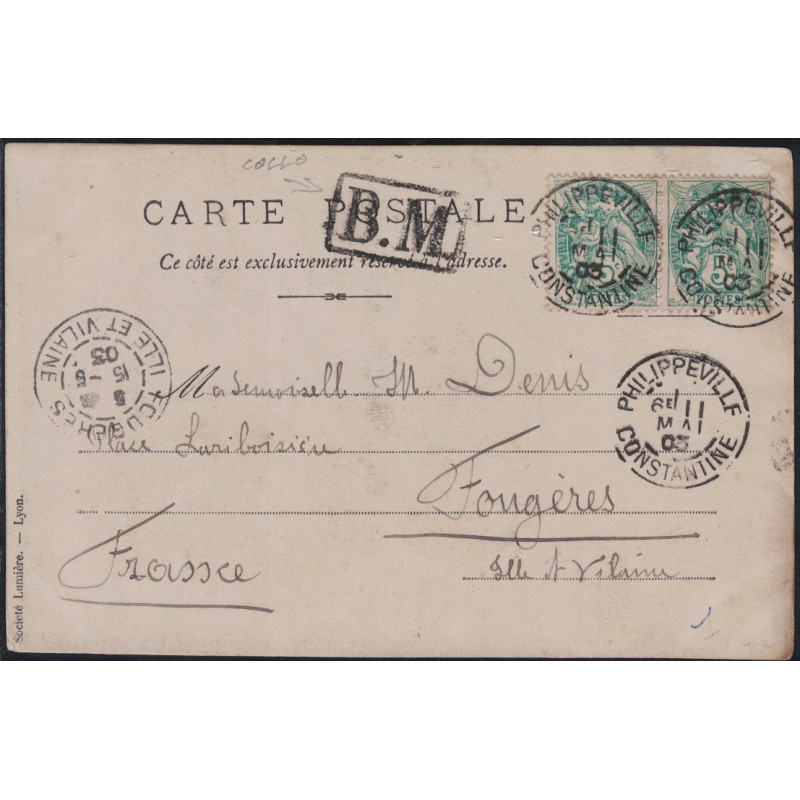 COLLO
CARTE POSTALE
B.M
Ce côté est exclusivement réservé à l'adresse.
PHILIPPEVILLE
6E 11
MAI
03
CONSTANTINE
PHILIPPEVILLE
6E 11
MAI
03
CONSTANTINE
5
POSTES
FOUGERES
15
03
ILLE ET VILAINE
Mademoiselle M. Denis
Place Lariboisière
PHILIPPEVILLE
6E 11
MAI
03
CONSTANTINE
Fougères
France
Ille et Vilaine
Societé Lumière. — Lyon.